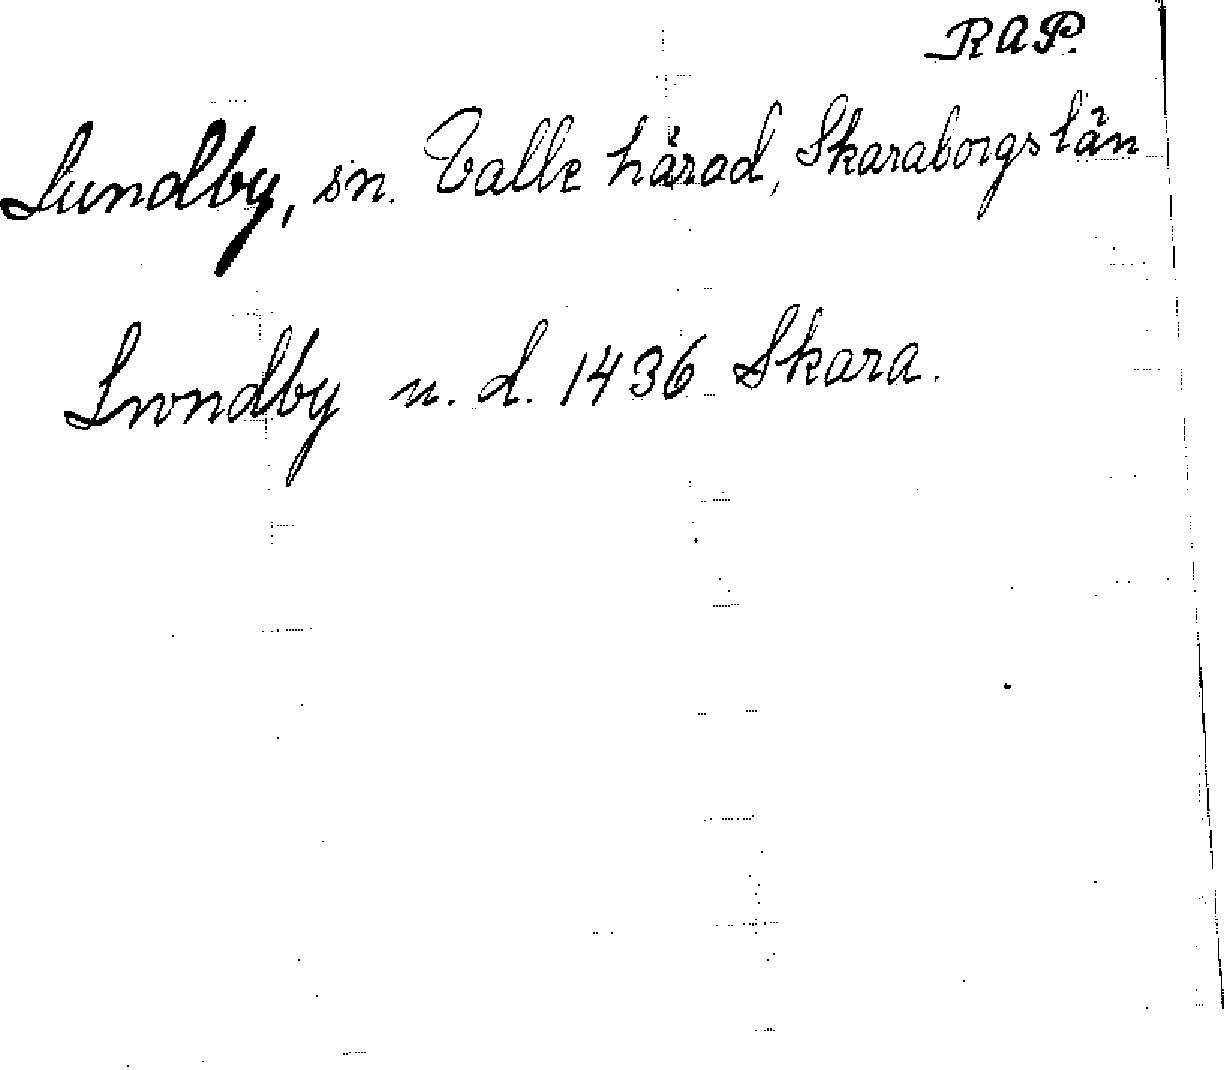 RAP.
Lundby, sn. Valle härad, Skaraborgs län
Lwndby u. d. 1436 Skara.